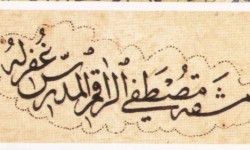 مشقه مصطفى الراقم المدرس غفر له